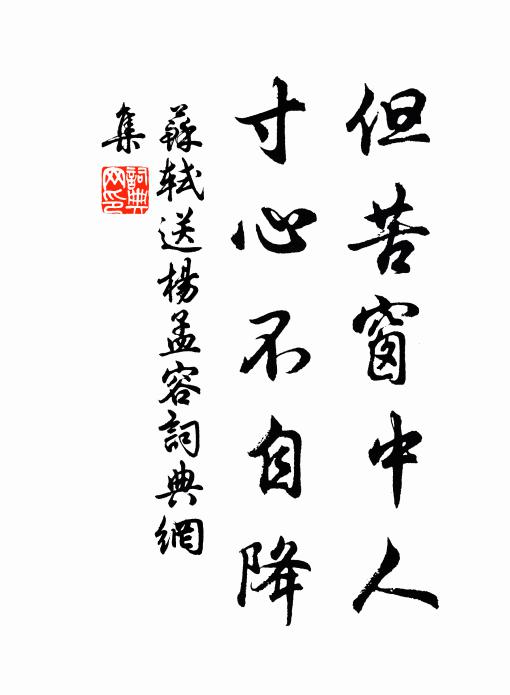 但苦窗中人
寸心不自降
蘇軾送楊孟容詞典網
集
詞典网印